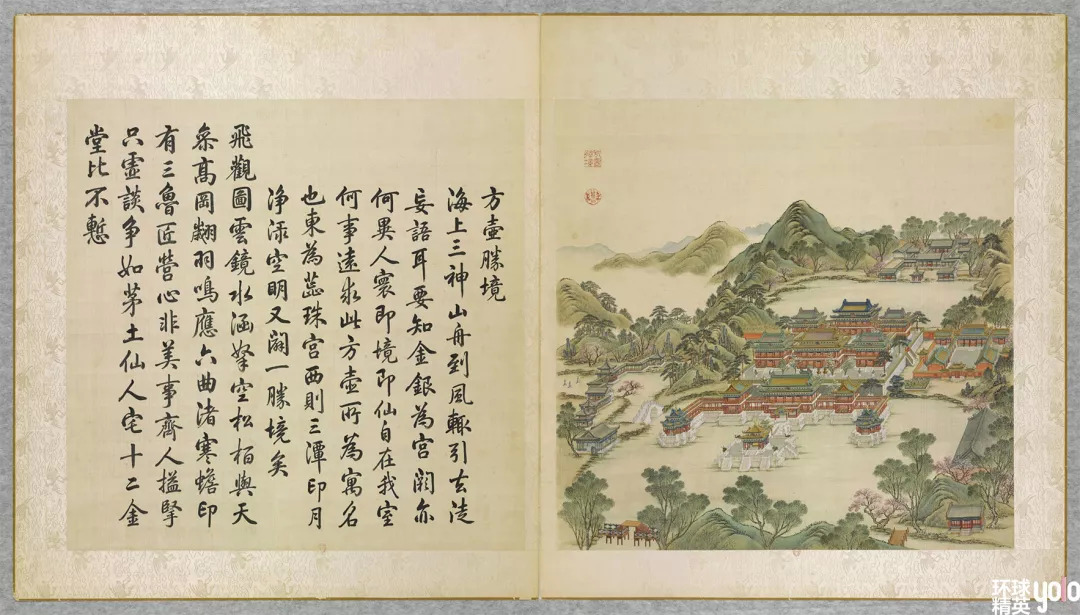 方壺勝境
海上三神山舟到風輙引去徒
妄語耳要知金銀為宮闕亦
何異人寰即境即仙自在我室
何事遠求此方壺所為寓名
也東為蕊珠宮西則三潭印月
净渌空明又闢一勝境矣
飛觀圖雲鏡水涵拏空松栢與天
叅高岡翽羽鳴應六曲渚寒蟾印
有三魯匠營心非美事齊人搤掔
只虛談争如茅土仙人宅十二金
堂比不慙
环球
精英 yolo